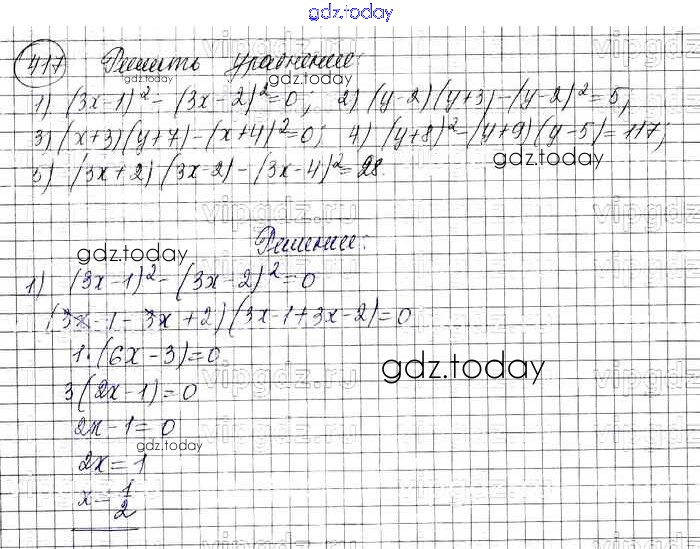 gdz.today
417 Решить уравнение:
gdz.today gdz.today
1) (3x-1)² - (3x-2)² = 0; 2) (y-2)(y+3) - (y-2)² = 5;
3) (x+3)(y+7) - (x+4)² = 0; 4) (y+8)² - (y+9)(y-5) = 117;
gdz.today
5) (3x+2)(3x-2) - (3x-4)² = 28
vipgdz.ru vipgdz.ru
Решение:
gdz.today
1) (3x-1)² - (3x-2)² = 0
(3x-1-3x+2)(3x-1+3x-2)=0
1·(6x-3)=0
gdz.today
3(2x-1)=0
2x-1=0
gdz.today
2x=1
x=1/2